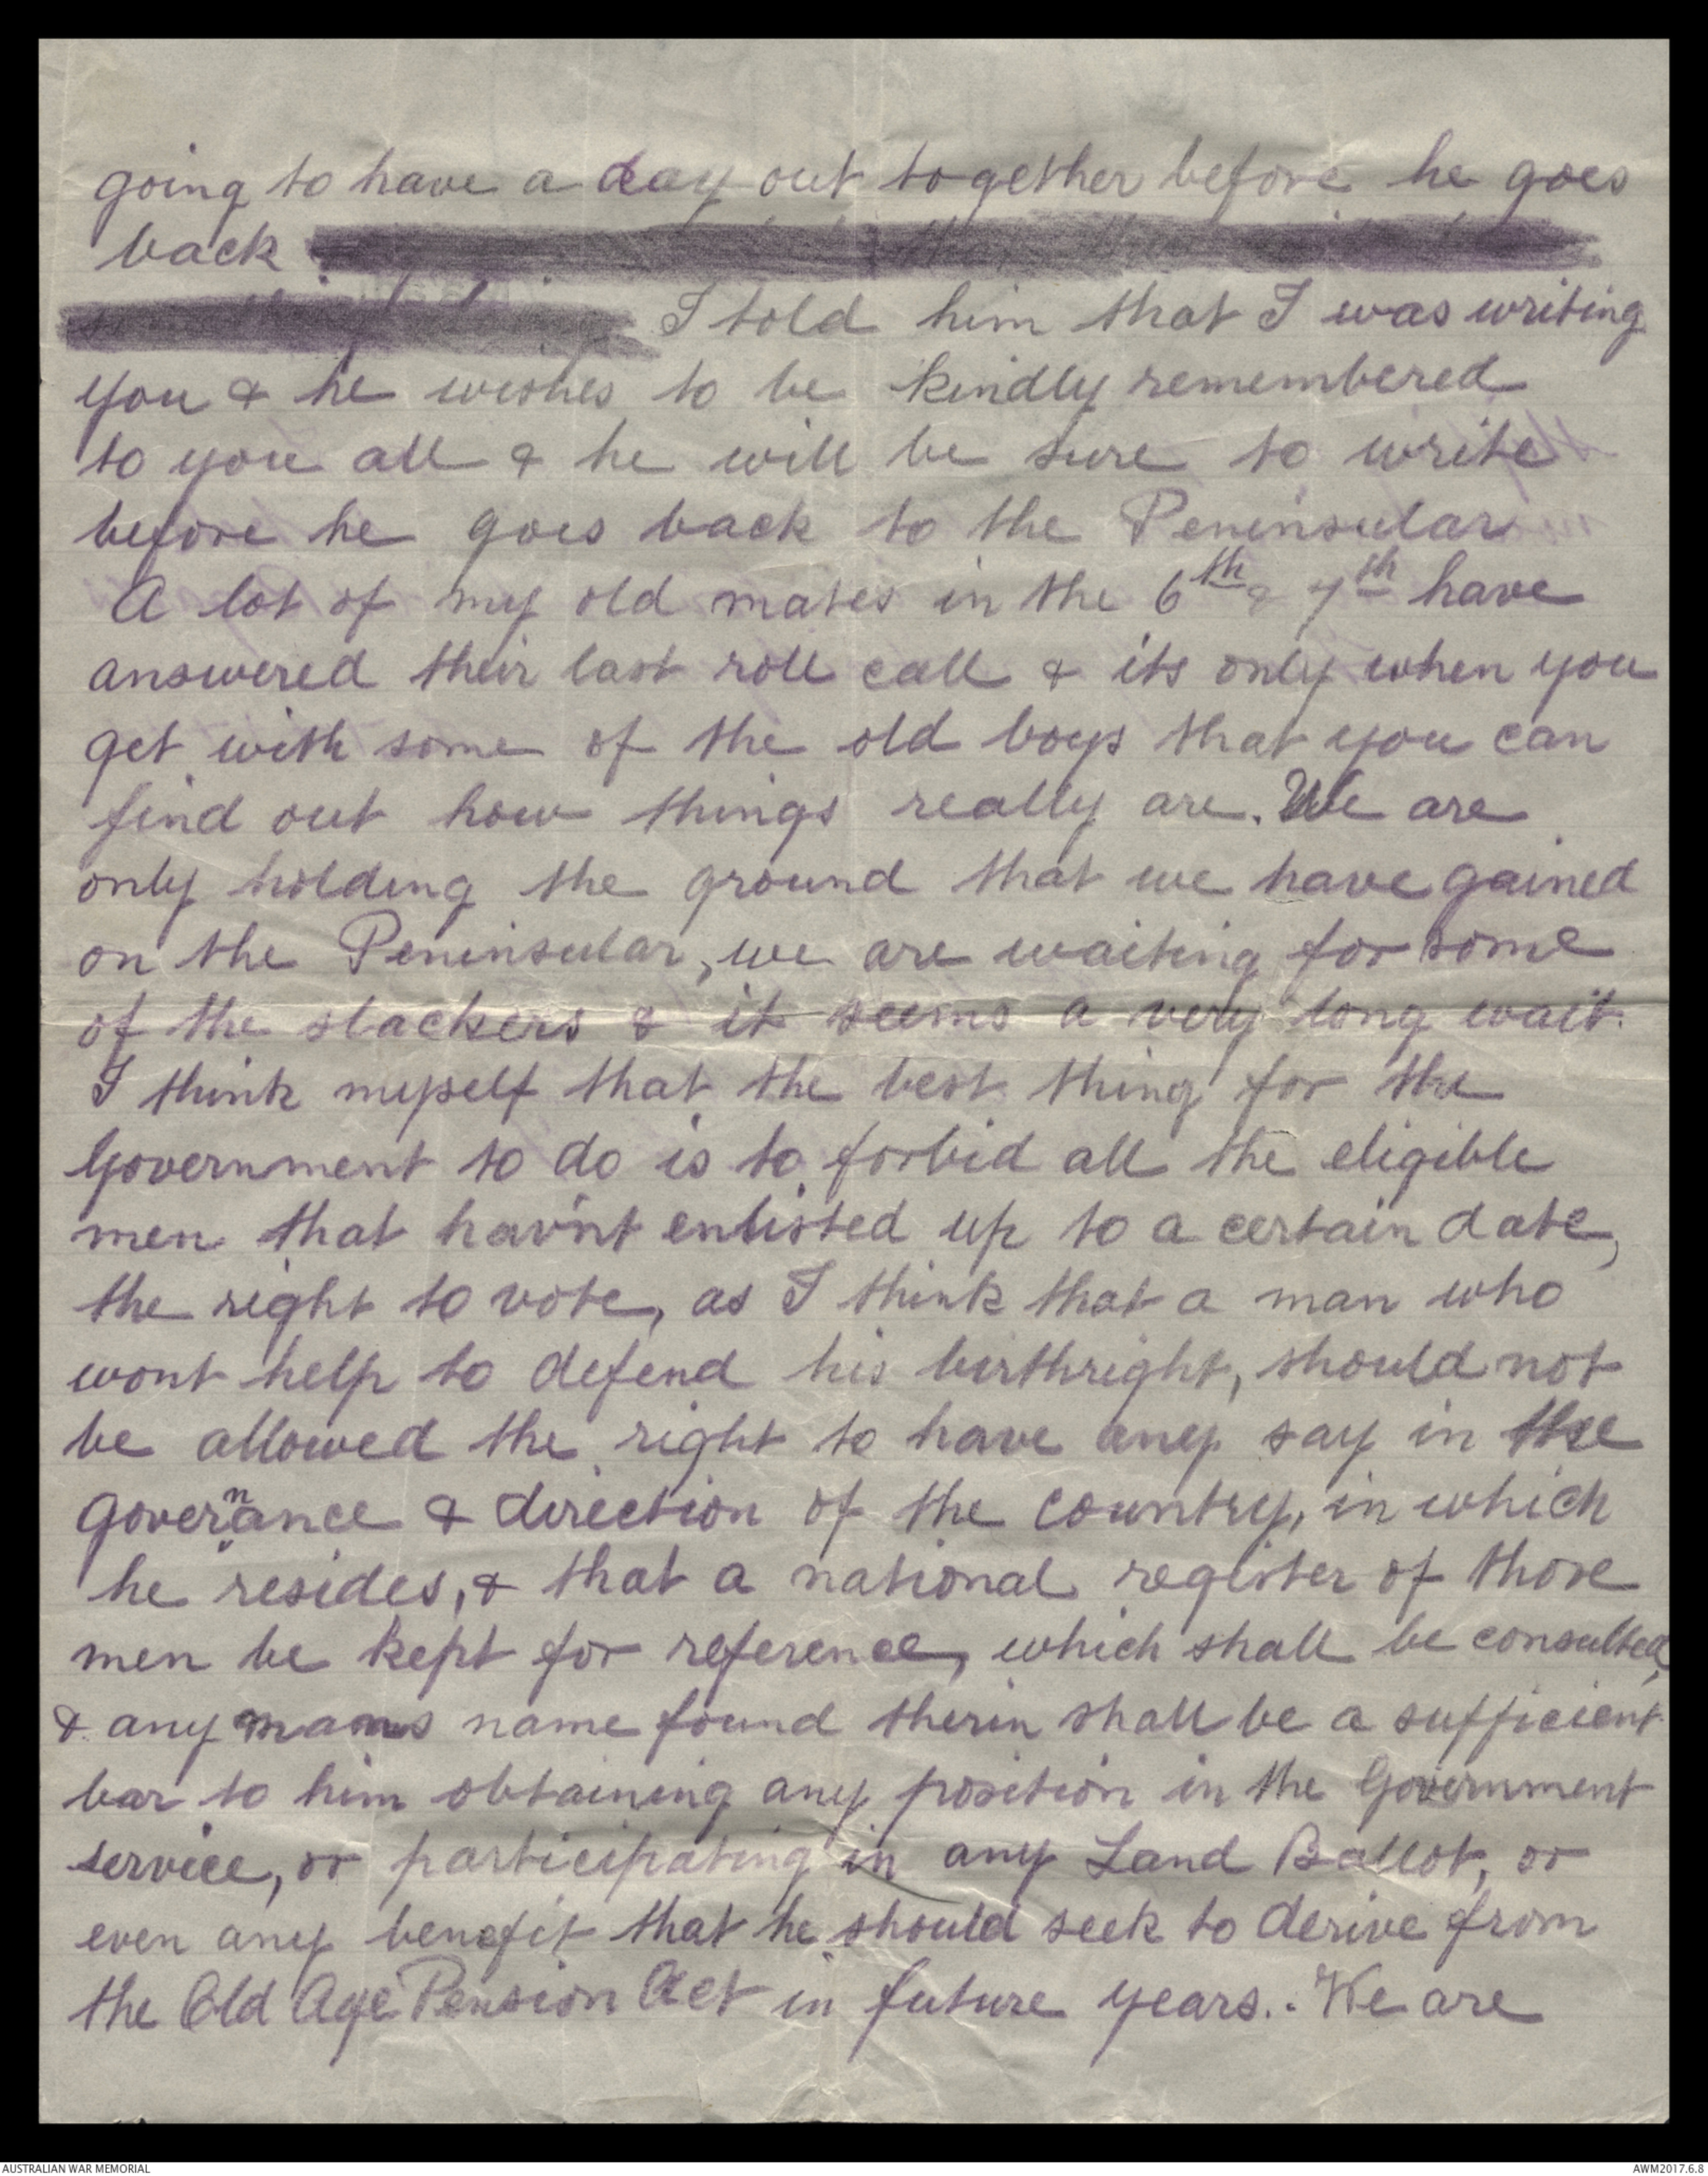 going to have a day out together before he goes
back
I told him that I was writing
you & he wishes to be kindly remembered
to you all & he will be sure to write
before he goes back to the Peninsular
A lot of my old mates in the 6th & 7th have
answered their last roll call & its only when you
get with some of the old boys that you can
find out how things really are. We are
only holding the ground that we have gained
on the Peninsular, we are waiting for some
of the slackers & it seems a very long wait.
I think myself that the best thing for the
Government to do is to forbid all the eligible
men that hav'nt enlisted up to a certain date,
the right to vote, as I think that a man who
wont help to defend his birthright, should not
be allowed the right to have any say in the
governance & direction of the country, in which
he resides, & that a national register of those
men be kept for reference, which shall be consulted,
& any mans name found therin shall be a sufficient
bar to him obtaining any position in the Government
service, or participating in any Land Ballot, or
even any benefit that he should seek to derive from
the Old Age Pension Act in future years.. We are
AUSTRALIAN WAR MEMORIAL
AWM2017.6.8